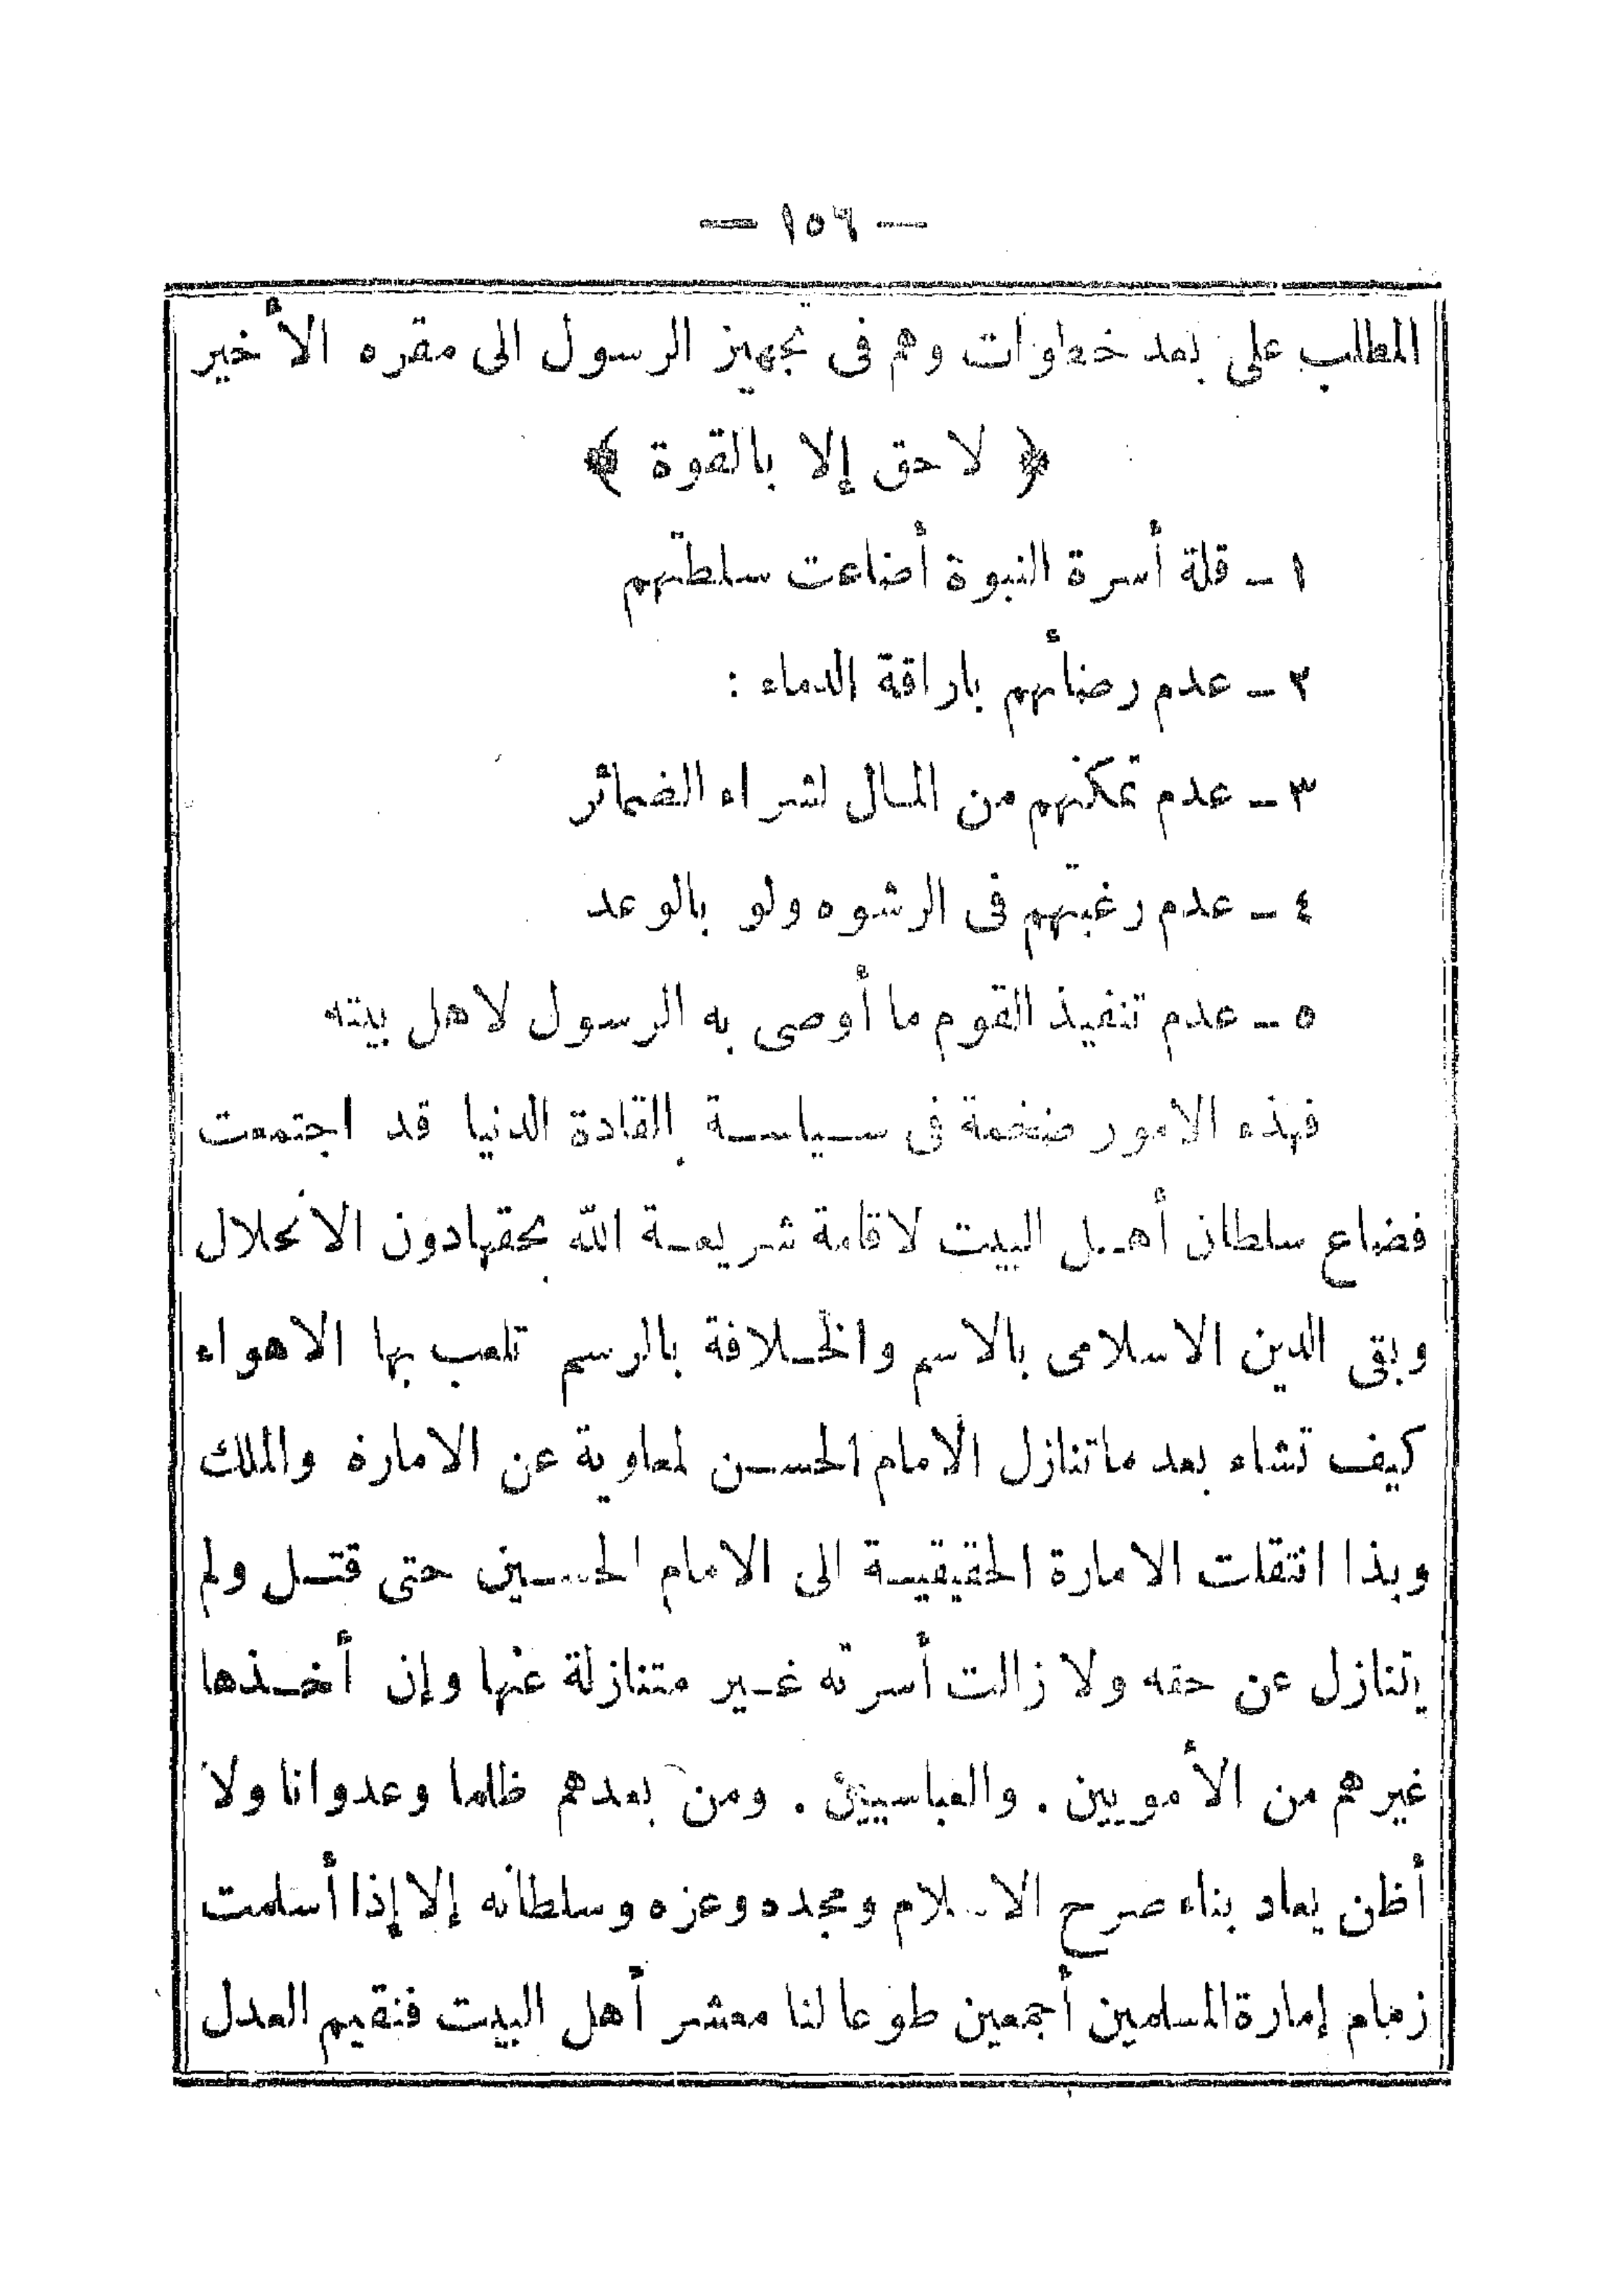 — ١٥٦ —
المطلب على بعد خطوات وهم فى تجهيز الرسول الى مقره الأخير
﴿ لا حق إلا بالقوة ﴾
١ ـ قلة أسرة النبوة أضاعت سلطتهم
٢ ـ عدم رضأئهم باراقة الدماء :
٣ ـ عدم تمكنهم من المال لشراء الضمائر
٤ ـ عدم رغبتهم فى الرشوه ولو بالوعد
٥ ـ عدم تنفيذ القوم ما أوصى به الرسول لاهل بيته
فهذه الامور ضخمة فى سياسة القادة الدنيا قد اجتمعت
فضاع سلطان أهل البيت لاقامة شريعة الله بحقها دون الانحلال
وبقى الدين الاسلامى بالاسم والخلافة بالرسم تلعب بها الاهواء
كيف تشاء بعد ما تنازل الامام الحسن لمعاوية عن الامارة والملك
وبذا انتقلت الامارة الحقيقية الى الامام الحسين حتى قتل ولم
يتنازل عن حقه ولا زالت أسرته غير متنازلة عنها وإن أخذها
غيرهم من الأمويين . والعباسيين . ومن بعدهم ظلما وعدوانا ولا
أظن يعاد بناء صرح الاسلام ومجده وعزه وسلطانه إلا إذا أسلمت
زمام إمارة المسلمين أجمعين طوعا لنا معشر أهل البيت فنقيم العدل